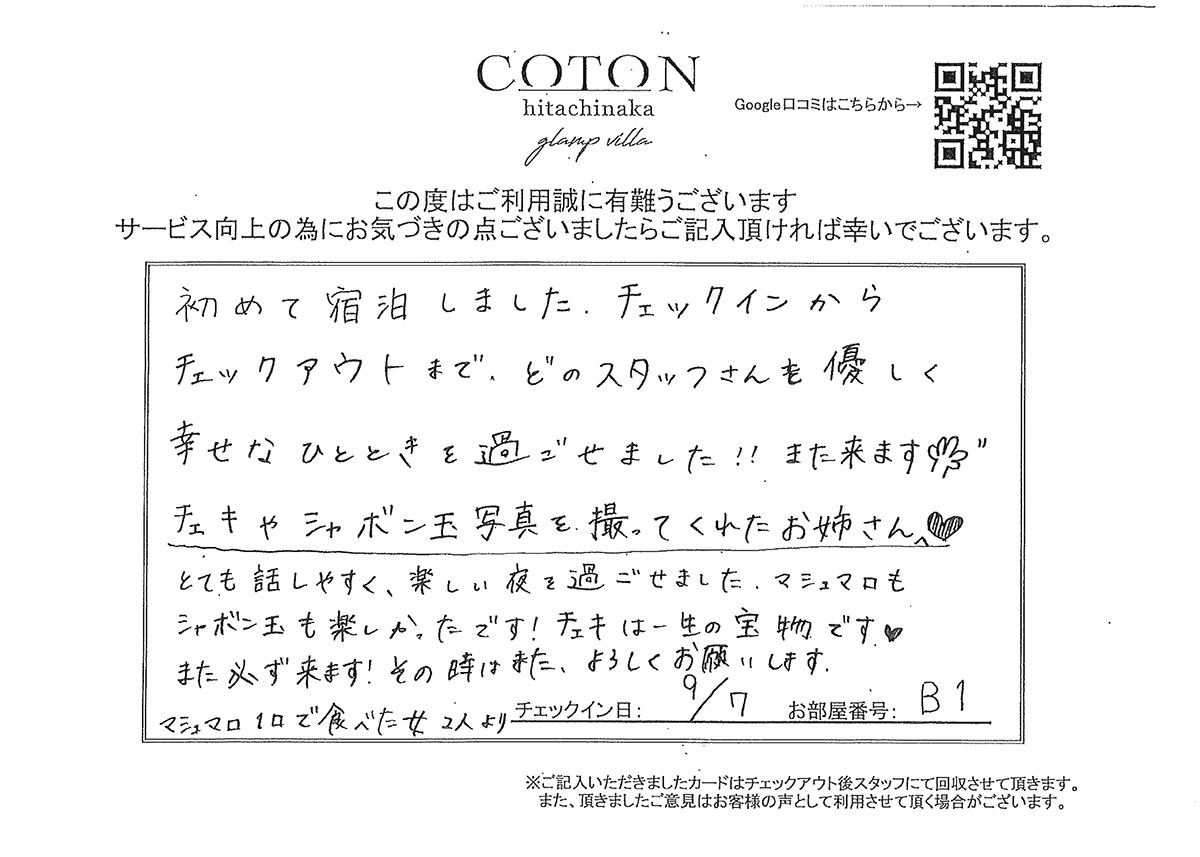 COTON
hitachinaka
glamp villa
Google口コミはこちらから→
この度はご利用誠に有難うございます
サービス向上の為にお気づきの点ございましたらご記入頂ければ幸いでございます。
初めて宿泊しました. チェックインから
チェックアウトまで、どのスタッフさんも優しく
幸せなひとときを過ごせました!! また来ます
チェキやシャボン玉写真を撮ってくれたお姉さん、♥
とても話しやすく、楽しい夜を過ごせました. マシュマロも
シャボン玉も楽しかったです! チェキは一生の宝物です♥
また必ず来ます! その時はまた、よろしくお願いします.
マシュマロ1口で食べた女2人より
チェックイン日: 9/7 お部屋番号: B1
※ご記入いただきましたカードはチェックアウト後スタッフにて回収させて頂きます。
また、頂きましたご意見はお客様の声として利用させて頂く場合がございます。